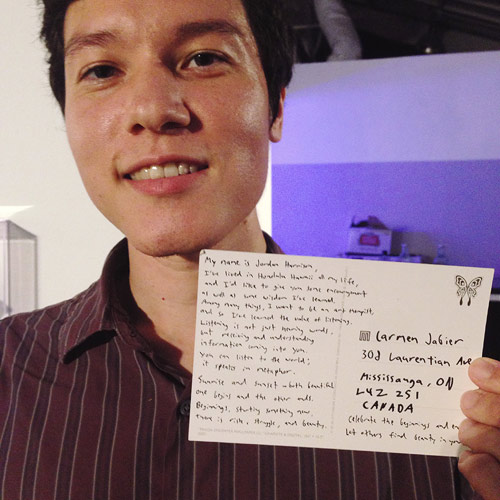 My name is Jordan Harrison,
I've lived in Honolulu Hawaii all my life,
and I'd like to give you some encouragement
as well as some wisdom I've learned.
Among many things, I want to be an art therapist,
and so I've learned the value of listening.
Listening is not just hearing words,
but receiving and understanding
information coming into you.
you can listen to the world;
it speaks in metaphor.
Sunrise and sunset – both beautiful
one begins and the other ends.
Beginnings, starting something new.
There is risk, struggle, and beauty.
Carmen Jabier
308 Laurentian Ave
Mississauga, ON
L4Z 2S1
CANADA
Celebrate the beginnings and en
Let others find beauty in you